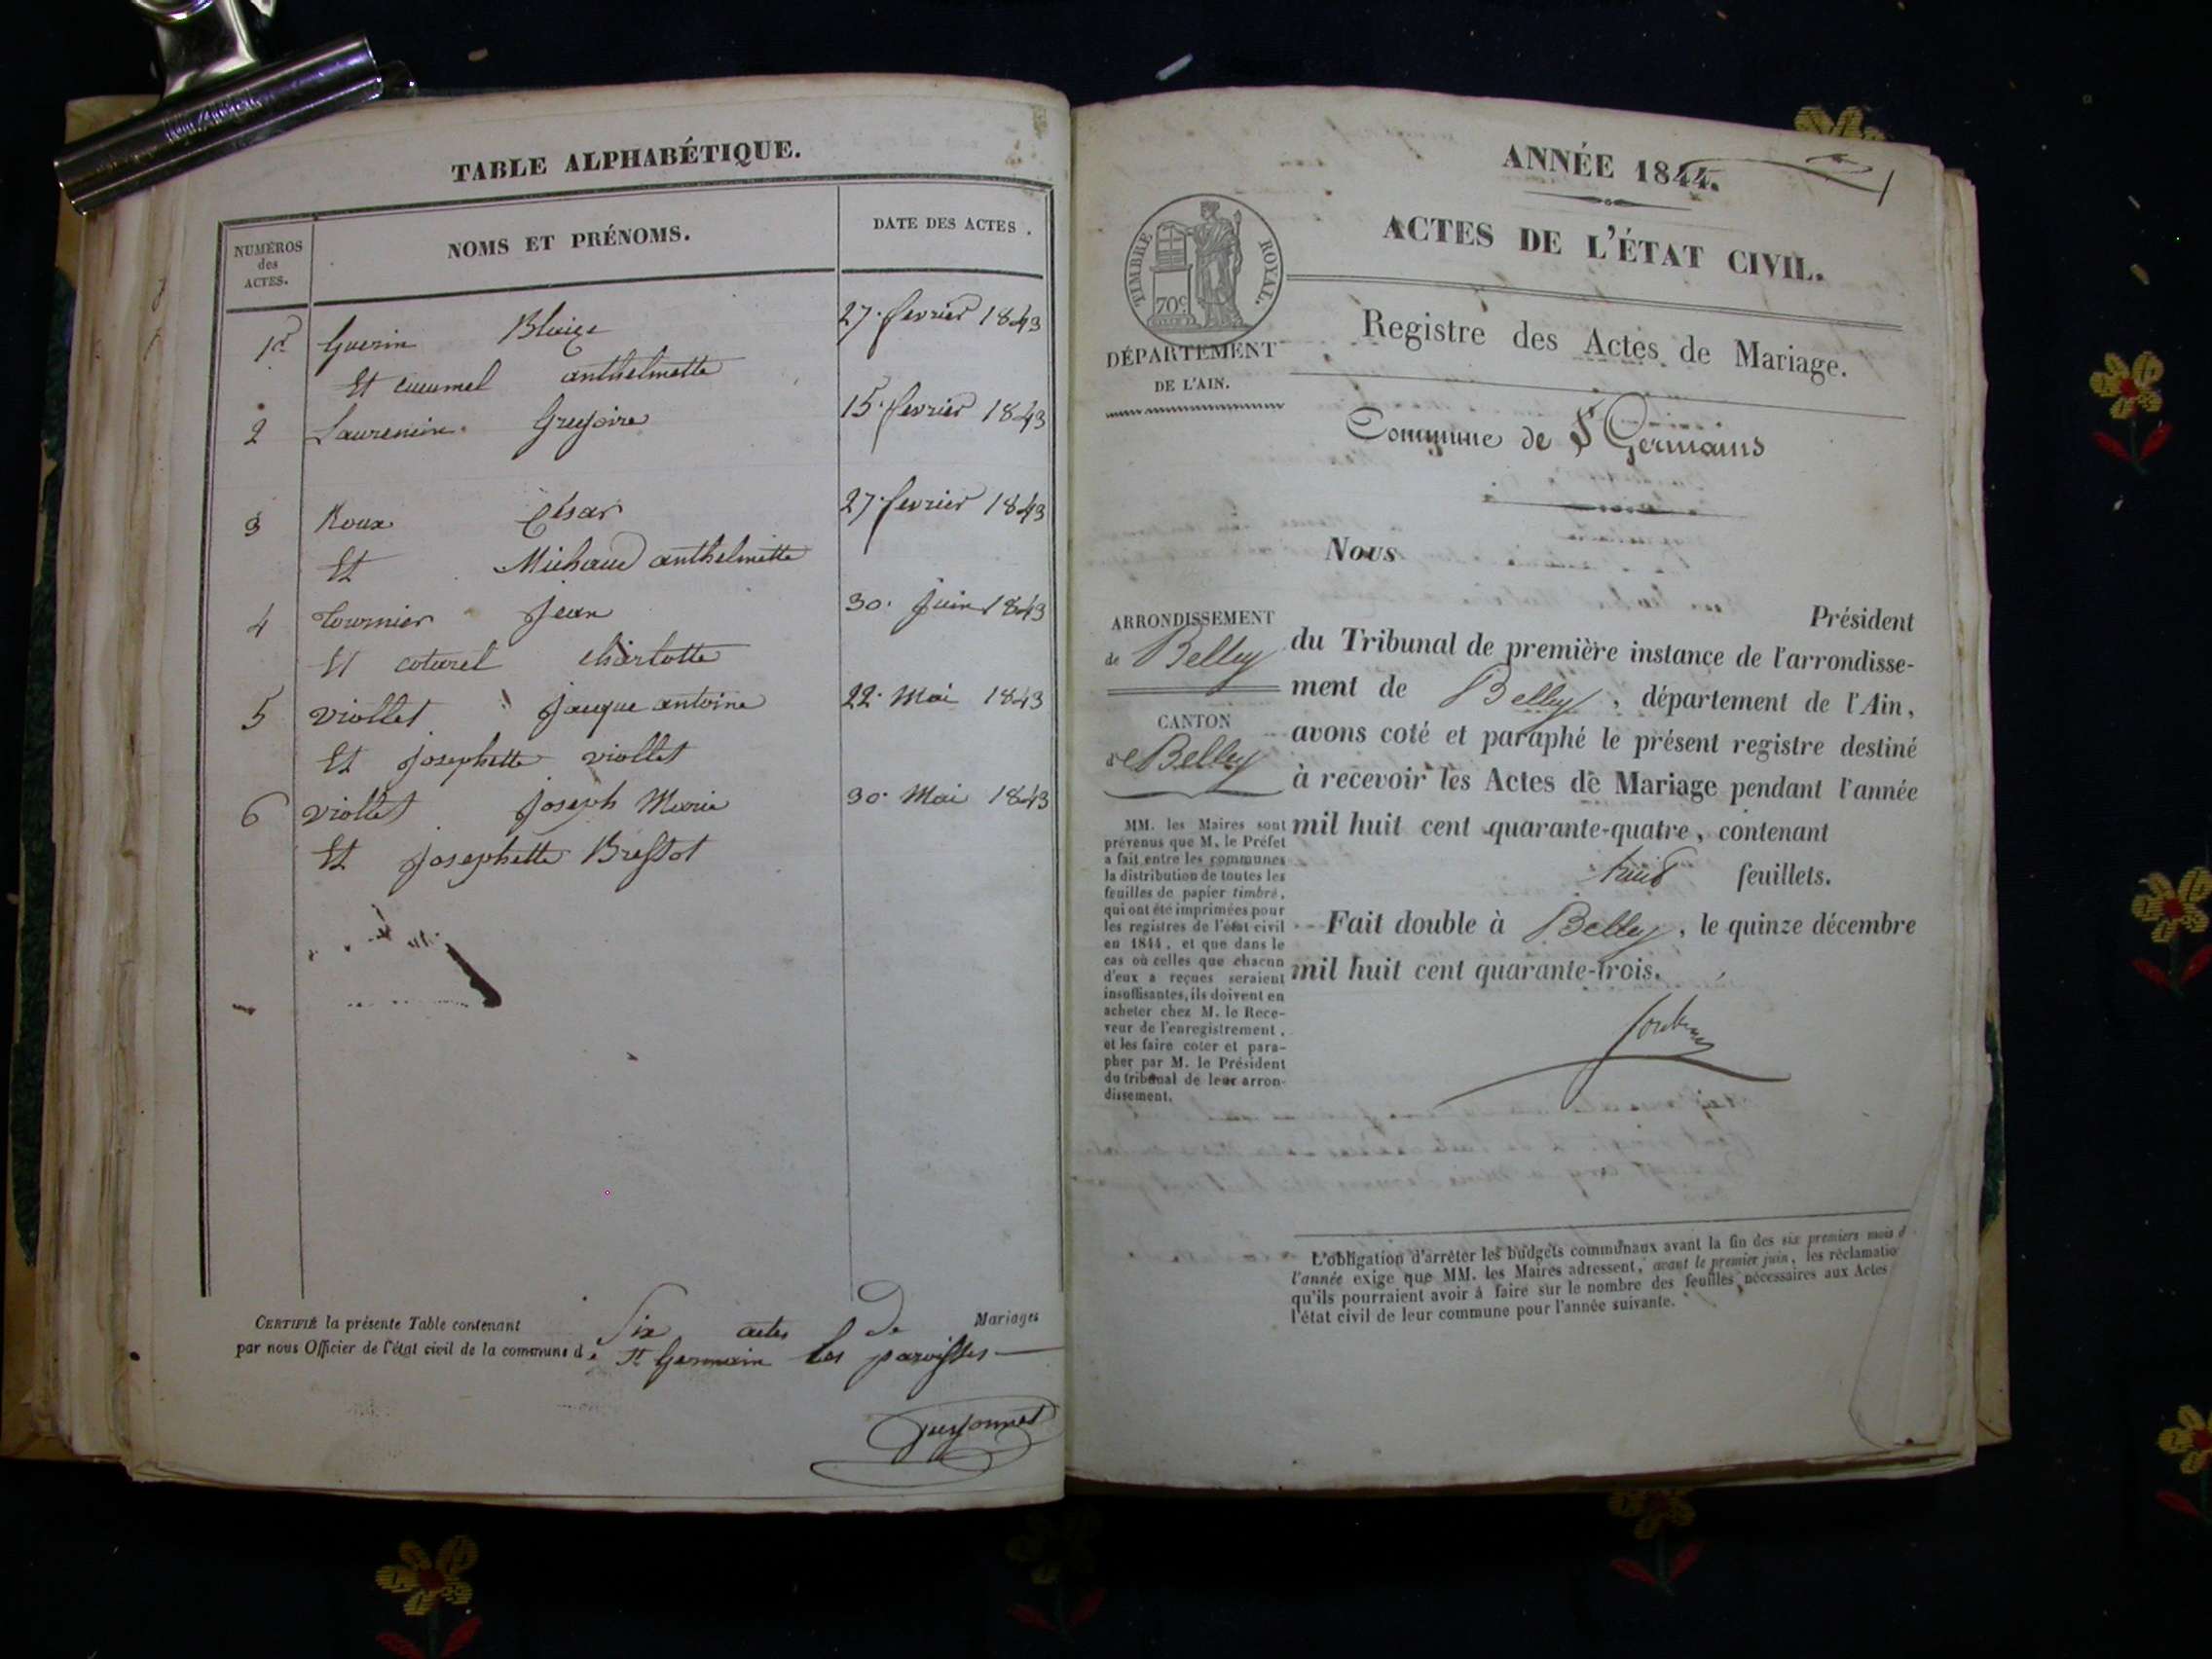 TABLE ALPHABÉTIQUE.
NUMÉROS
des
ACTES.
NOMS ET PRÉNOMS.
DATE DES ACTES.
1er Guerin Blaize 27. fevrier 1843
Et cucumel anthelmette
2 Laurencin Gregoire 15. fevrier 1843
3 Roux César 27. fevrier 1843
Et Michaud anthelmette
4 tournier Jean 30. Juin 1843
Et coturel charlotte
5 viollet Jacque antoine 22. Mai 1843
Et Josephette viollet
6 viollet Joseph Marie 30. Mai 1843
Et Josephette Brestot
CERTIFIÉ la présente Table contenant Six actes de Mariages
par nous Officier de l'état civil de la commune de St Germain les paroisses
ANNÉE 1844.
1
ACTES DE L'ÉTAT CIVIL.
TIMBRE ROYAL.
70c
DÉPARTEMENT
DE L'AIN.
Registre des Actes de Mariage.
Commune de St Germains
Nous
Président
ARRONDISSEMENT
de Belley
CANTON
de Belley
du Tribunal de première instance de l'arrondisse-
ment de Belley, département de l'Ain,
avons coté et paraphé le présent registre destiné
à recevoir les Actes de Mariage pendant l'année
mil huit cent quarante-quatre, contenant
huit feuillets.
Fait double à Belley, le quinze décembre
mil huit cent quarante-trois.
MM. les Maires sont
prévenus que M. le Préfet
a fait entre les communes
la distribution de toutes les
feuilles de papier timbré,
qui ont été imprimées pour
les registres de l'état civil
en 1844, et que dans le
cas où celles que chacun
d'eux a reçues seraient
insuffisantes, ils doivent en
acheter chez M. le Rece-
veur de l'enregistrement,
et les faire coter et para-
pher par M. le Président
du tribunal de leur arron-
dissement.
L'obligation d'arrêter les budgets communaux avant la fin des six premiers mois d
l'année exige que MM. les Maires adressent, avant le premier juin, les réclamatio
qu'ils pourraient avoir à faire sur le nombre des feuilles nécessaires aux Actes
l'état civil de leur commune pour l'année suivante.